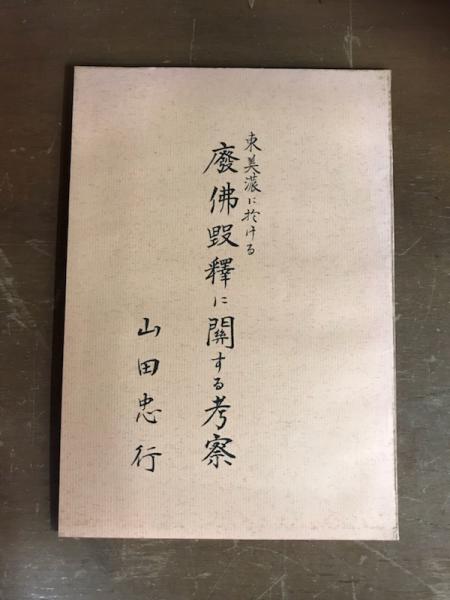 東美濃に於ける
廢佛毀釋に關する考察
山田忠行